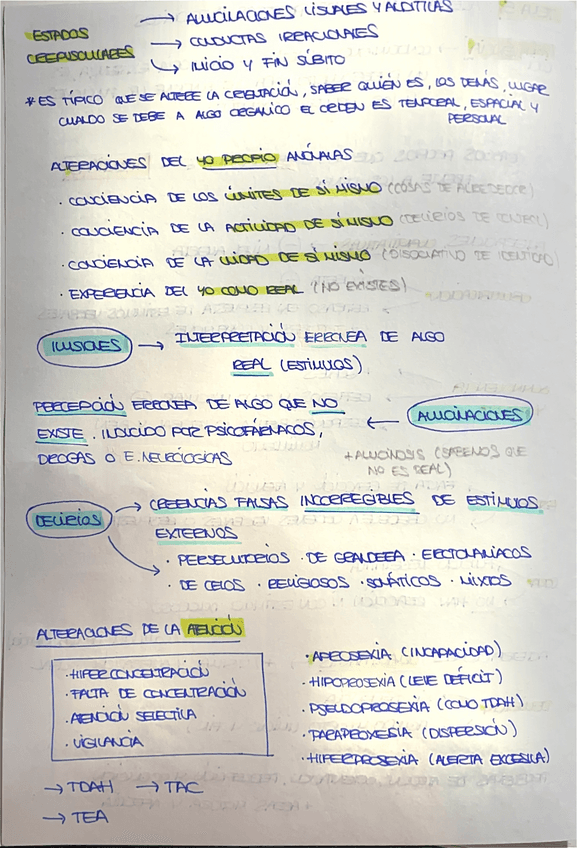 → ALUCINACIONES VISUALES Y AUDITIVAS
ESTADOS CREPUSCULARES → CONDUCTAS IRRACIONALES
→ INICIO Y FIN SÚBITO
* ES TÍPICO QUE SE ALTERE LA ORIENTACIÓN, SABER QUIÉN ES, LOS DEMÁS, LUGAR
CUANDO SE DEBE A ALGO ORGÁNICO EL ORDEN ES TEMPORAL, ESPACIAL Y
PERSONAL
ALTERACIONES DEL YO PROPIO ANÓMALAS
· CONCIENCIA DE LOS LÍMITES DE SÍ MISMO (COSAS DE ALREDEDOR)
· CONCIENCIA DE LA ACTIVIDAD DE SÍ MISMO (DELIRIOS DE CONTROL)
· CONCIENCIA DE LA UNIDAD DE SÍ MISMO (DISOCIATIVO DE IDENTIDAD)
· EXPERIENCIA DEL YO COMO REAL (NO EXISTES)
ILUSIONES → INTERPRETACIÓN ERRONEA DE ALGO
REAL (ESTÍMULOS)
PERCEPCIÓN ERRONEA DE ALGO QUE NO
EXISTE. INDUCIDO POR PSICOFÁRMACOS,
DROGAS O E. NEUROLÓGICAS
← ALUCINACIONES
+ ALUCINOSIS (SABEMOS QUE
NO ES REAL)
DELIRIOS → CREENCIAS FALSAS INCORREGIBLES DE ESTÍMULOS
EXTERNOS
· PERSECUTORIOS · DE GRANDEZA · EROTOMANÍACOS
· DE CELOS · RELIGIOSOS · SOMÁTICOS · MIXTOS
ALTERACIONES DE LA ATENCIÓN
· HIPERCONCENTRACIÓN
· FALTA DE CONCENTRACIÓN
· ATENCIÓN SELECTIVA
· VIGILANCIA
· APROSEXIA (INCAPACIDAD)
· HIPOPROSEXIA (LEVE DÉFICIT)
· PSEUDOPROSEXIA (COMO TDAH)
· PARAPROXESIA (DISPERSIÓN)
· HIPERPROSEXIA (ALERTA EXCESIVA)
→ TDAH → TAC
→ TEA